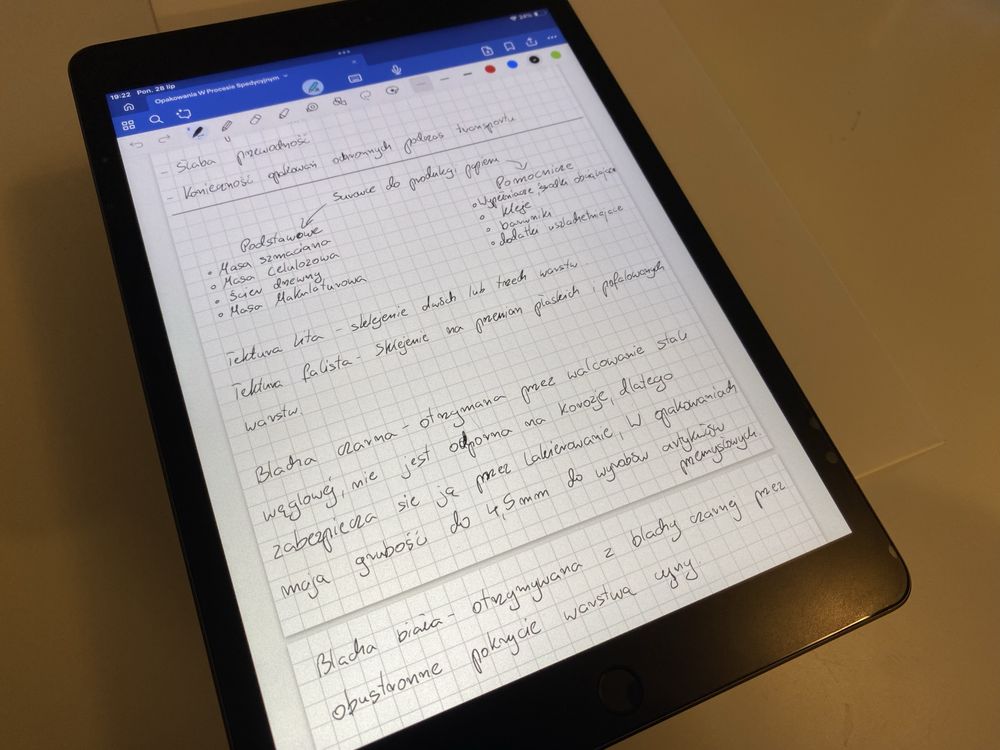 19:22 Pon. 28 lip
24%
Opakowania W Procesie Spedycyjnym
- Słaba przewodność
- Konieczność opakowań ochronnych podczas transportu
Surowce do produkcji papieru
Podstawowe
• Masa szmaciana
• Masa Celulozowa
• Ścier drzewny
• Masa Makulaturowa
Pomocnicze
• Wypełniacze, środki obciążające
• kleje
• barwniki
• dodatki uszlachetniające
Tektura lita - sklejenie dwóch lub trzech warstw
Tektura falista - sklejenie na przemian płaskich i pofalowanych
warstw.
Blacha czarna - otrzymana przez walcowanie stali
węglowej, nie jest odporna na korozje, dlatego
zabezpiecza się ją przez lakierowanie, W opakowaniach
maja grubość do 4,5mm do wyrobów artykułów
przemysłowych.
Blacha biała - otrzymywana z blachy czarnej przez
obustronne pokrycie warstwa cyny.